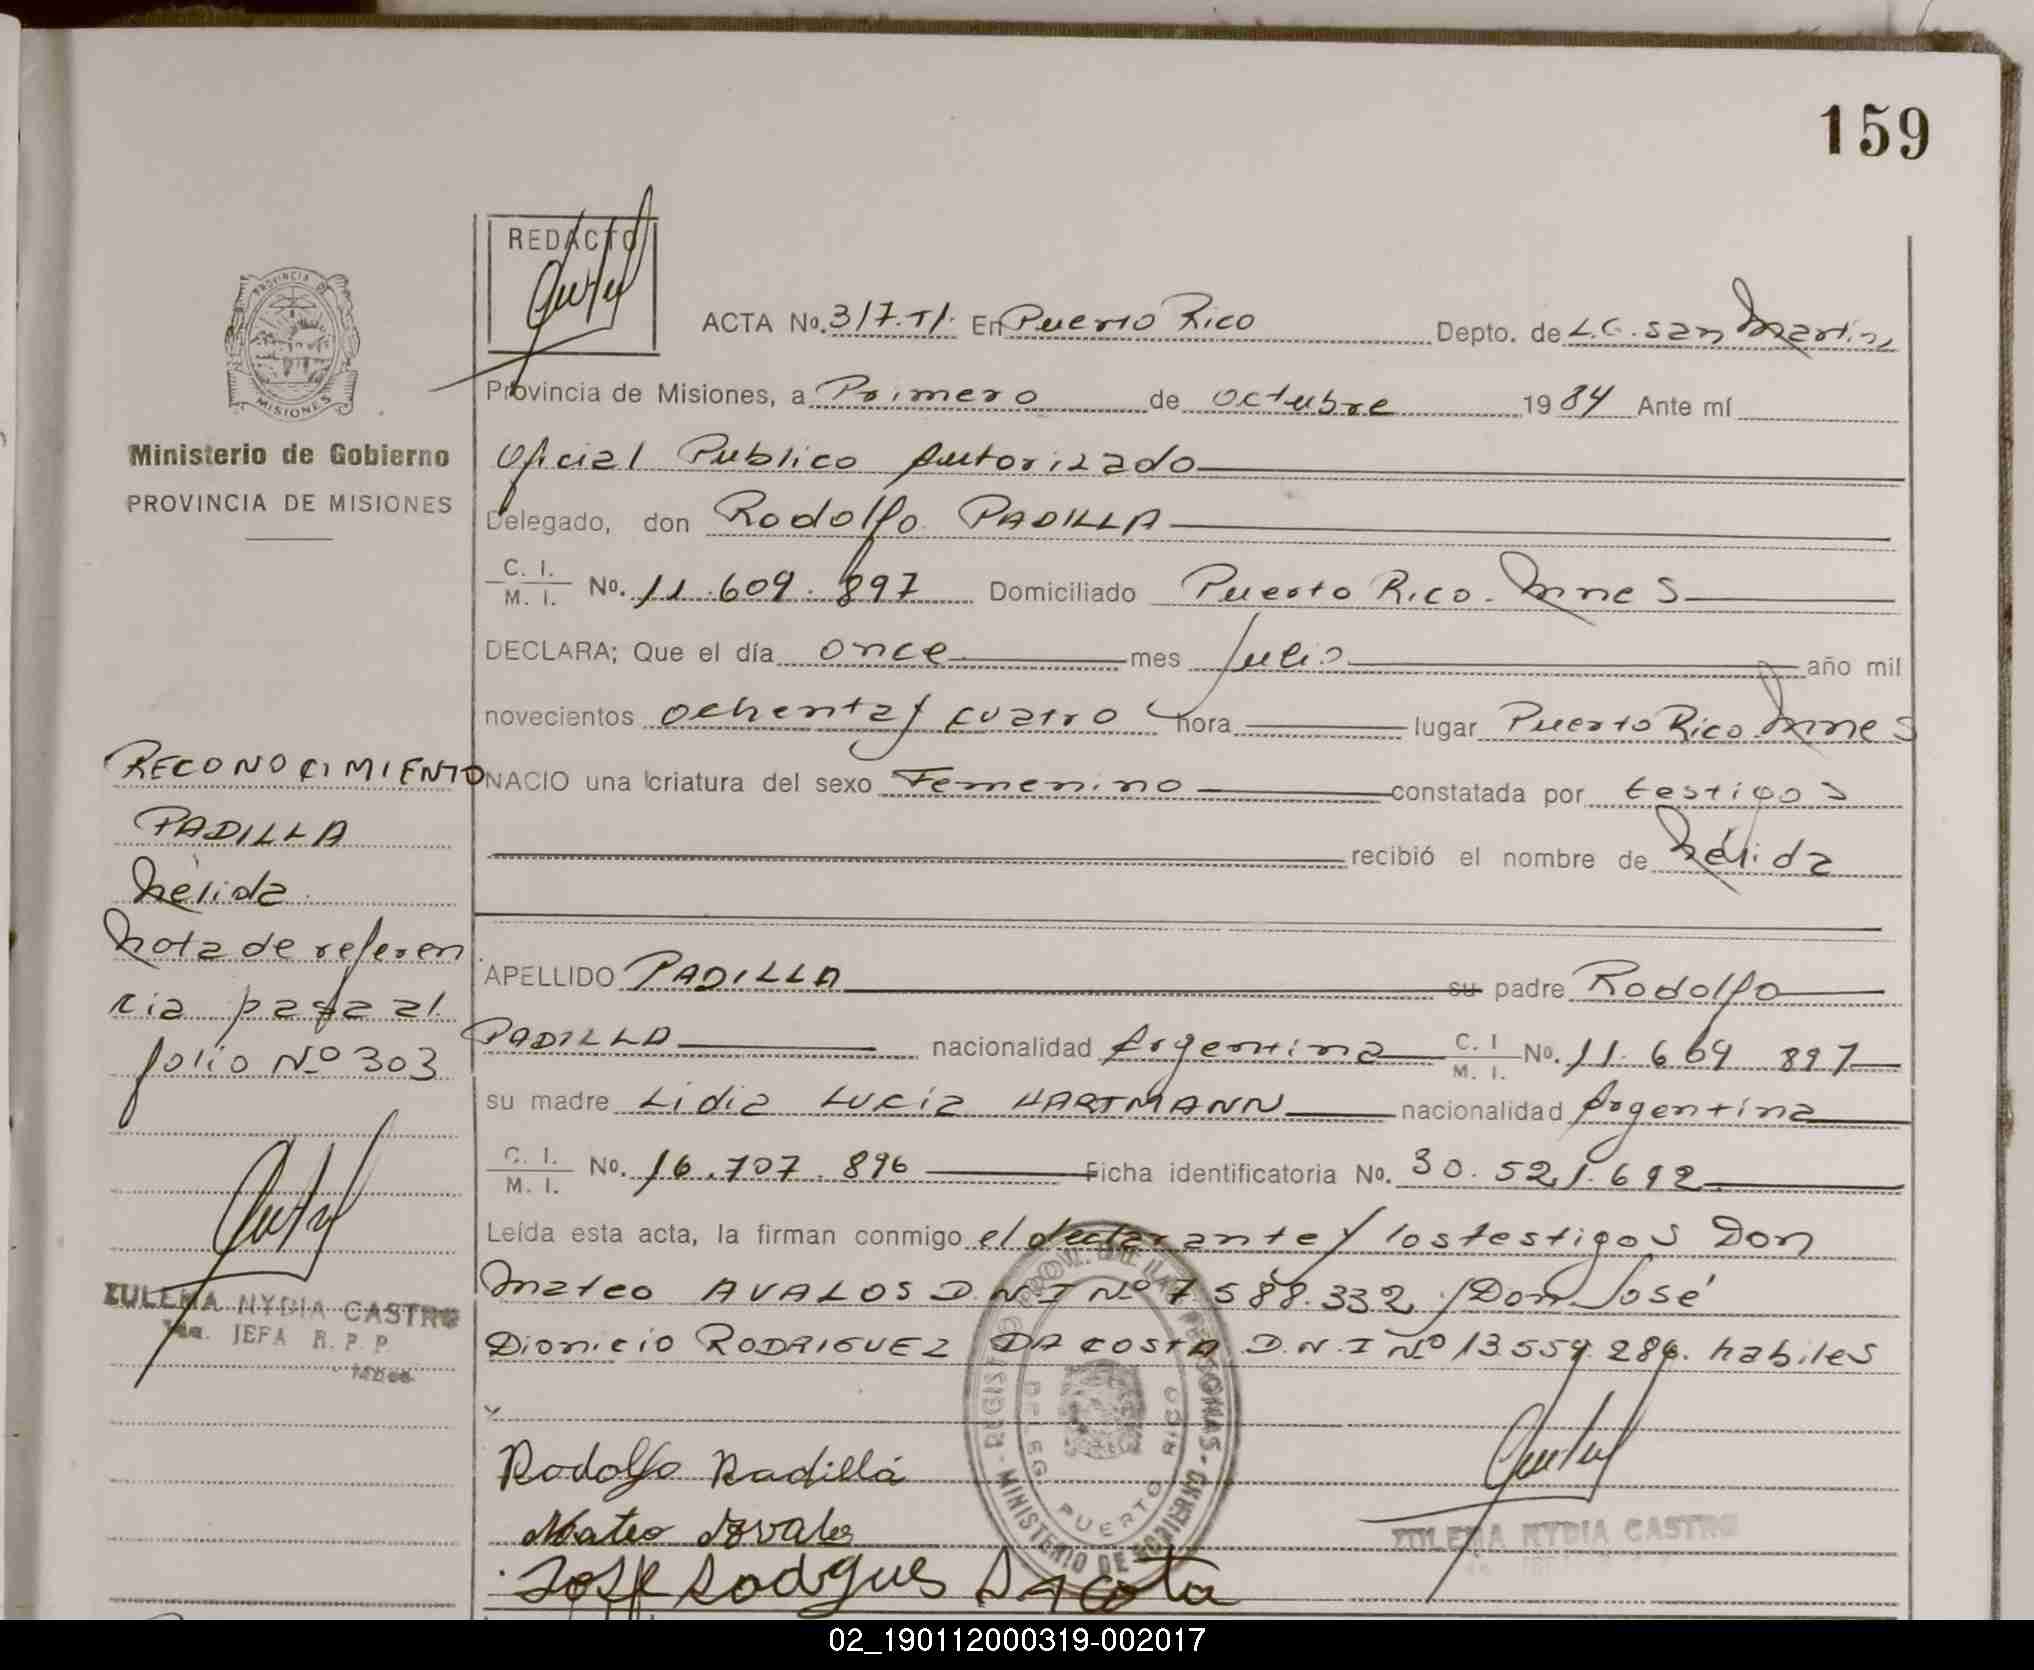 159
REDACTO
ACTA No. 317.TI. En Puerto Rico Depto. de L.G. San Martín,
PROVINCIA DE MISIONES
Provincia de Misiones, a Primero de octubre 1984 Ante mí
Ministerio de Gobierno
PROVINCIA DE MISIONES
Oficial Publico Autorizado
Delegado, don Rodolfo PADILLA
C. I. M. I. No. 11.609.897 Domiciliado Puerto Rico. Mnes
DECLARA; Que el día once mes Julio año mil
novecientos ochenta y cuatro hora lugar Puerto Rico Mnes
NACIO una criatura del sexo Femenino constatada por testigos
recibió el nombre de Nélida
RECONOCIMIENTO
PADILLA
Nélida
Nota de referen
cia pasa al
folio Nº 303
APELLIDO PADILLA su padre Rodolfo
PADILLA nacionalidad Argentina C. I M. I. No. 11.609.897
su madre Lidia Lucía HARTMANN nacionalidad Argentina
C. I. M. I. No. 16.707.896 Ficha identificatoria No. 30.521.692
Leída esta acta, la firman conmigo el declarante y los testigos Don
Mateo AVALOS D.N.I Nº 7.588.332 y Don José
Dionicio RODRIGUEZ DA COSTA D.N.I Nº 13.559.286. habiles
ZULEMA NYDIA CASTRO
JEFA R.P.P.
REGISTRO PROV. DE LAS PERSONAS - MINISTERIO DE GOBIERNO -
DELEG. PUERTO RICO
Rodolfo Padilla
Mateo Avalos
José Rodgues Dacota
ZULEMA NYDIA CASTRO
02_190112000319-002017